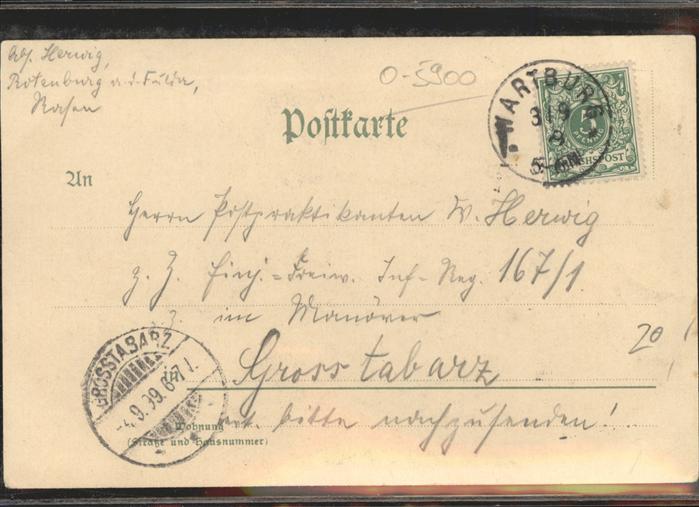 Abs. Herwig,
Rotenburg a.d. Fulda,
0-5900
Postkarte
WARTBURG
3/9
5
REICHSPOST
An
Herrn Postpraktikanten W. Herwig
z. Z. Einj.-Freiw. Inf-Reg. 167/1
z. im Manöver
in Gross tabarz
20
GROSSTABARZ
4.9.99. 6-7
evt. bitte nachzusenden!
Wohnung
(Straße und Hausnummer)